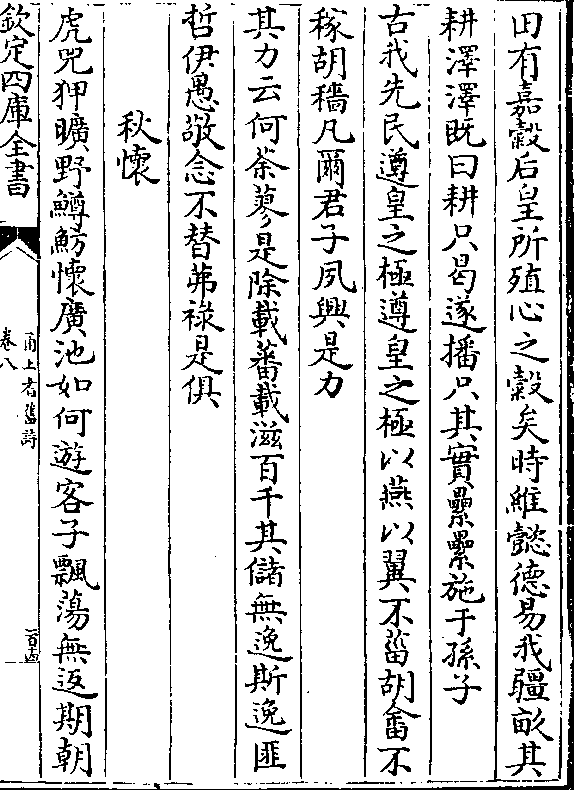 田有嘉穀后皇所殖心之穀矣時維懿德易我疆畝其
耕澤澤既曰耕只曷遂播只其實纍纍施于孫子
古我先民遵皇之極遵皇之極以燕以翼不菑胡畬不
稼胡穡凡爾君子夙興是力
其力云何荼蓼是除載蕃載滋百千其儲無逸斯逸匪
哲伊愚敬念不替茀祿是俱
秋懷
虎兕狎曠野鱒魴懷廣池如何遊客子飄蕩無返期朝
欽定四庫全書
甬上耆舊詩
卷八